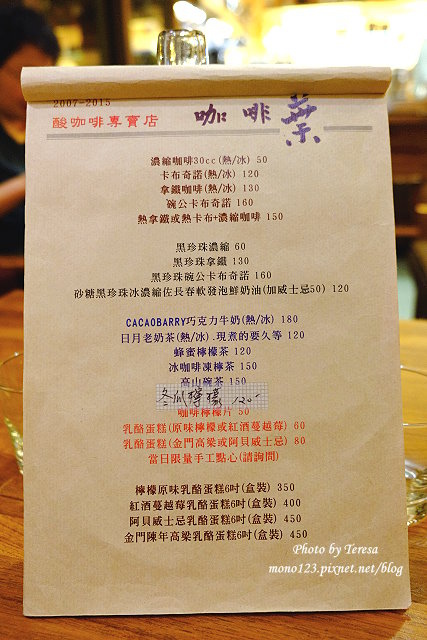 2007-2015
酸咖啡專賣店
咖啡葉
濃縮咖啡30cc(熱/冰) 50
卡布奇諾(熱/冰) 120
拿鐵咖啡(熱/冰) 130
碗公卡布奇諾 160
熱拿鐵或熱卡布+濃縮咖啡 150
黑珍珠濃縮 60
黑珍珠拿鐵 130
黑珍珠碗公卡布奇諾 160
砂糖黑珍珠冰濃縮佐長春軟發泡鮮奶油(加威士忌50) 120
CACAOBARRY巧克力牛奶(熱/冰) 180
日月老奶茶(熱/冰).現煮的要久等 120
蜂蜜檸檬茶 120
冰咖啡凍檸茶 150
高山碗茶 150
冬瓜檸檬 120-
咖啡檸檬片 50
乳酪蛋糕(原味檸檬或紅酒蔓越莓) 60
乳酪蛋糕(金門高梁或阿貝威士忌) 80
當日限量手工點心(請詢問)
檸檬原味乳酪蛋糕6吋(盒裝) 350
紅酒蔓越莓乳酪蛋糕6吋(盒裝) 400
阿貝威士忌乳酪蛋糕6吋(盒裝) 450
金門陳年高梁乳酪蛋糕6吋(盒裝) 450
Photo by Teresa
mono123.pixnet.net/blog